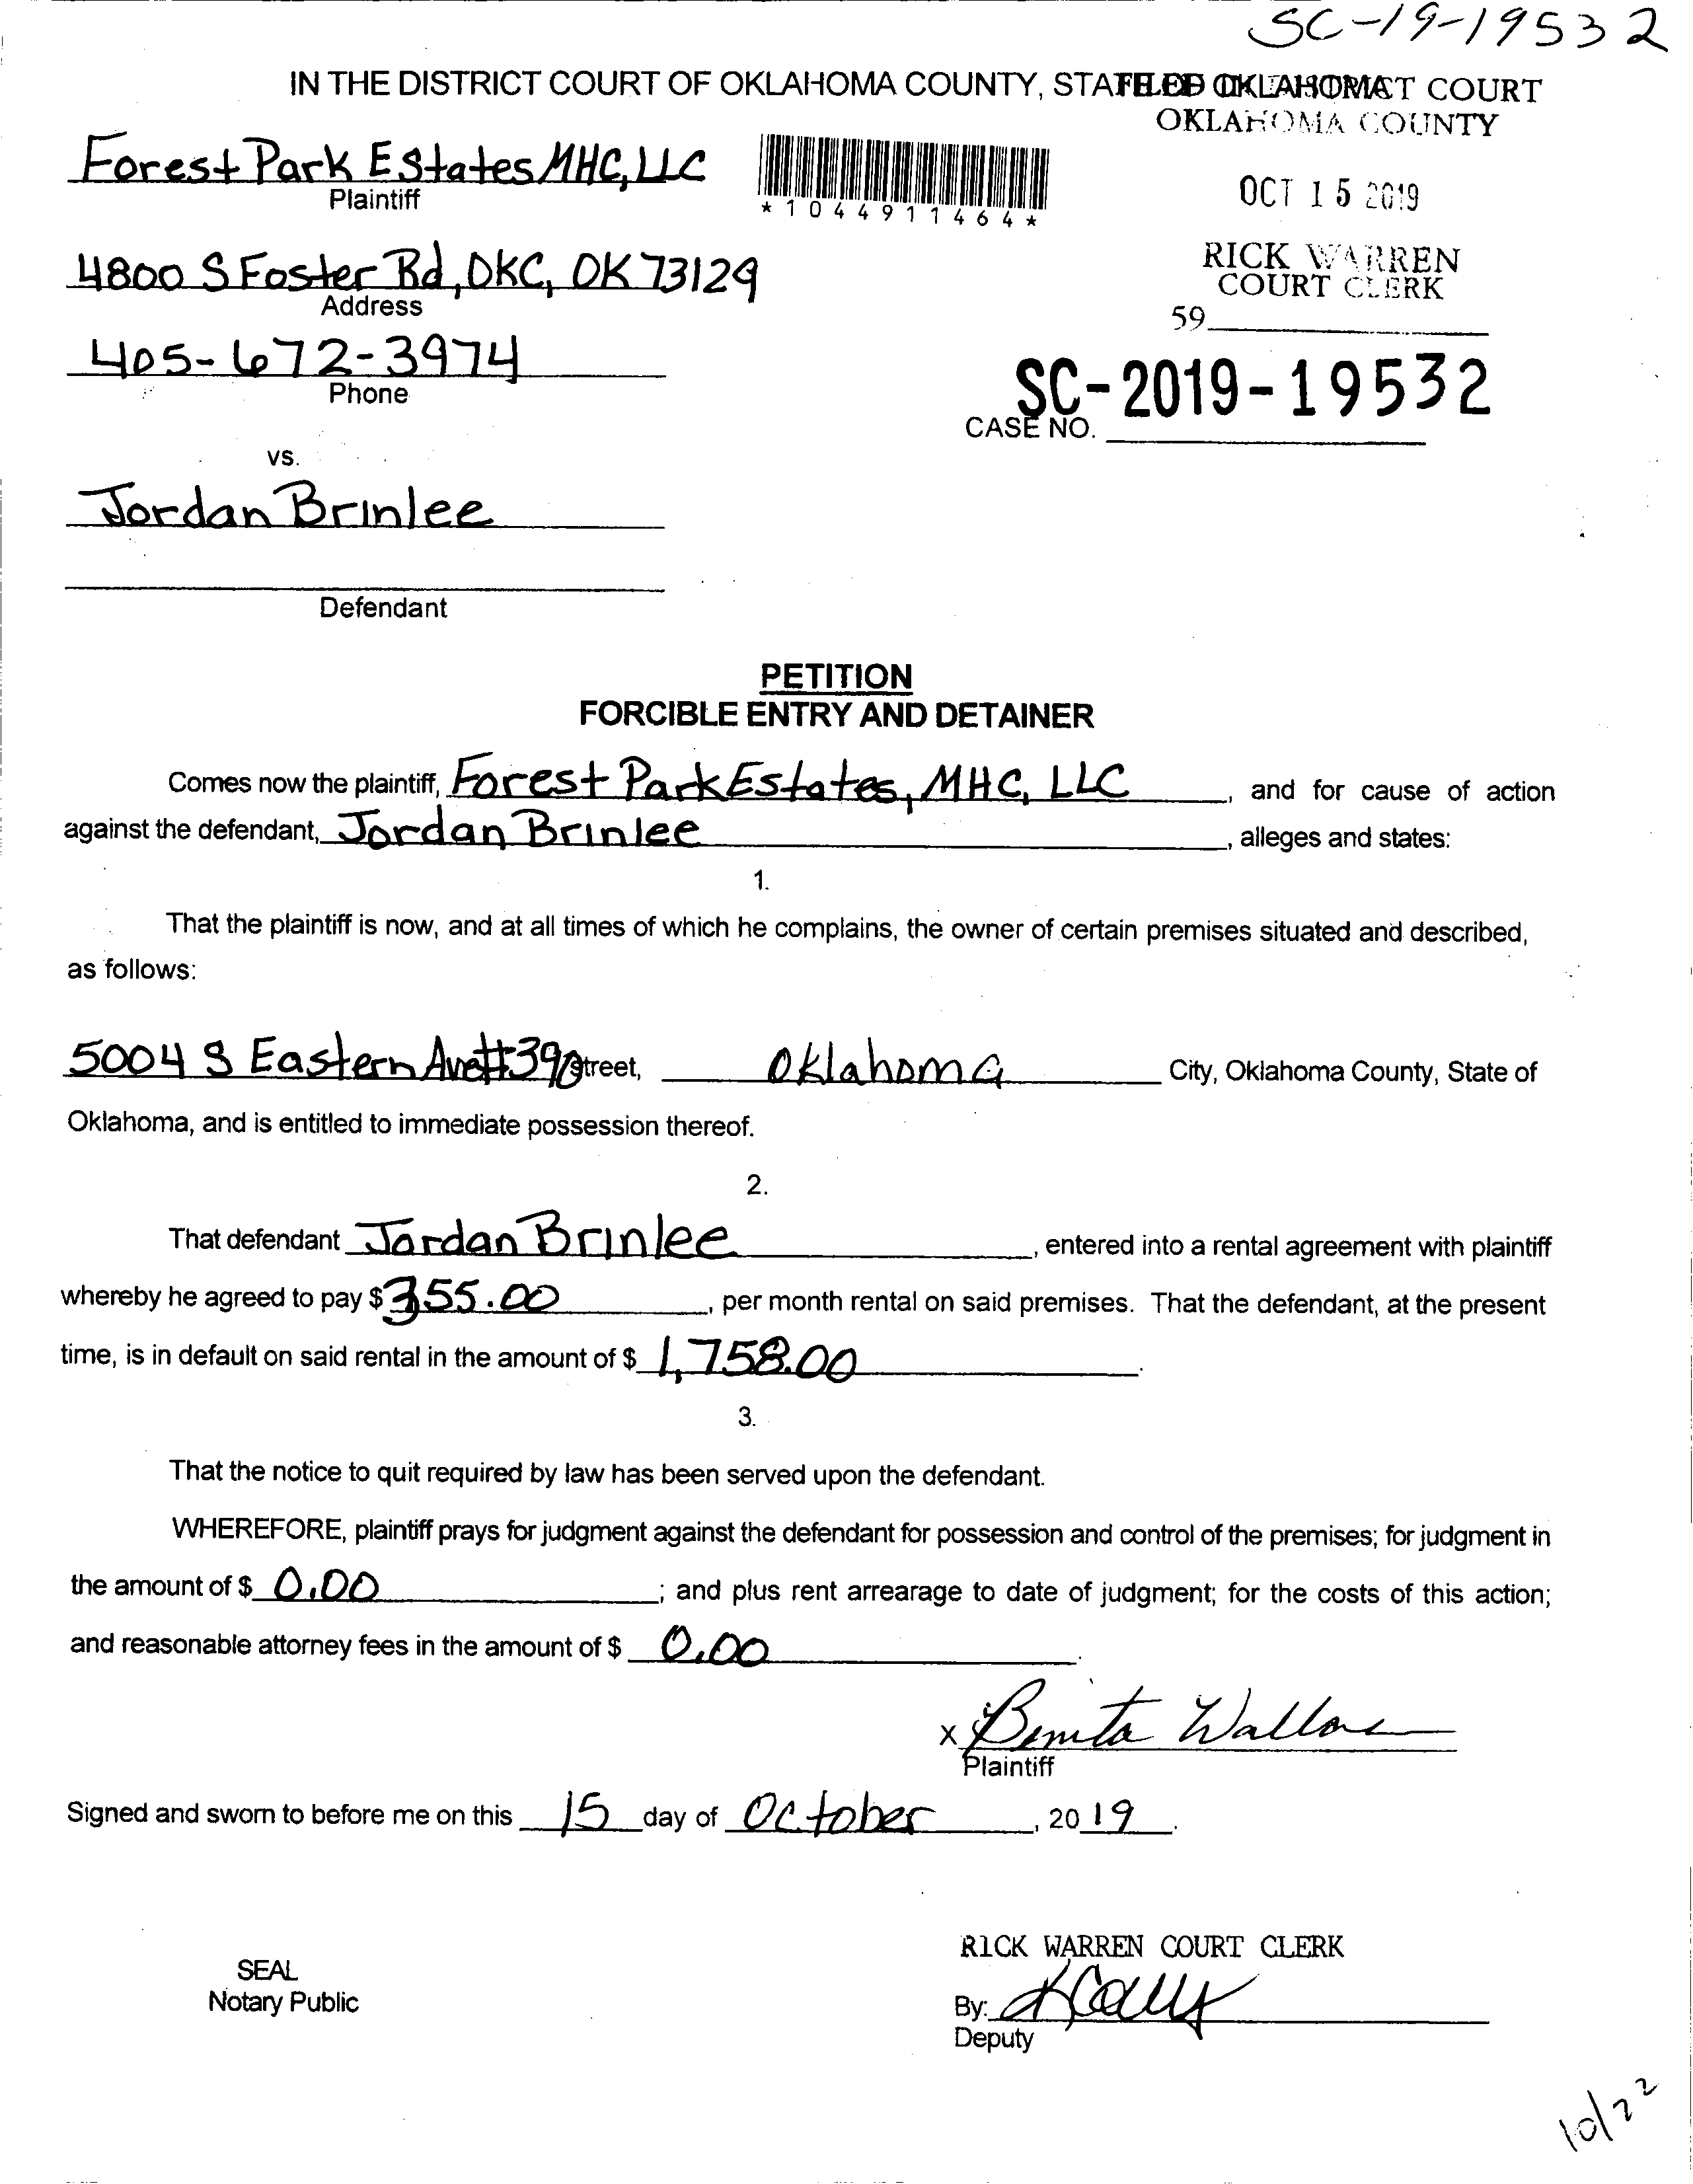 SC-19-19532
IN THE DISTRICT COURT OF OKLAHOMA COUNTY, STATE OF OKLAHOMA
FILED IN DISTRICT COURT
OKLAHOMA COUNTY
Forest Park Estates MHC, LLC
Plaintiff
*1044911464*
OCT 15 2019
4800 S Foster Rd, OKC, OK 73129
Address
RICK WARREN
COURT CLERK
59
405-672-3974
Phone
SC-2019-19532
CASE NO.
vs.
Jordan Brinlee
Defendant
PETITION
FORCIBLE ENTRY AND DETAINER
Comes now the plaintiff, Forest Park Estates, MHC, LLC, and for cause of action
against the defendant, Jordan Brinlee, alleges and states:
1.
That the plaintiff is now, and at all times of which he complains, the owner of certain premises situated and described,
as follows:
5004 S Eastern Ave #39 Street, Oklahoma City, Oklahoma County, State of
Oklahoma, and is entitled to immediate possession thereof.
2.
That defendant Jordan Brinlee, entered into a rental agreement with plaintiff
whereby he agreed to pay $ 355.00, per month rental on said premises. That the defendant, at the present
time, is in default on said rental in the amount of $ 1,758.00.
3.
That the notice to quit required by law has been served upon the defendant.
WHEREFORE, plaintiff prays for judgment against the defendant for possession and control of the premises; for judgment in
the amount of $ 0.00; and plus rent arrearage to date of judgment; for the costs of this action;
and reasonable attorney fees in the amount of $ 0.00.
x Benita Wallace
Plaintiff
Signed and sworn to before me on this 15 day of October, 2019.
RICK WARREN COURT CLERK
SEAL
Notary Public
By:
Deputy
10/22